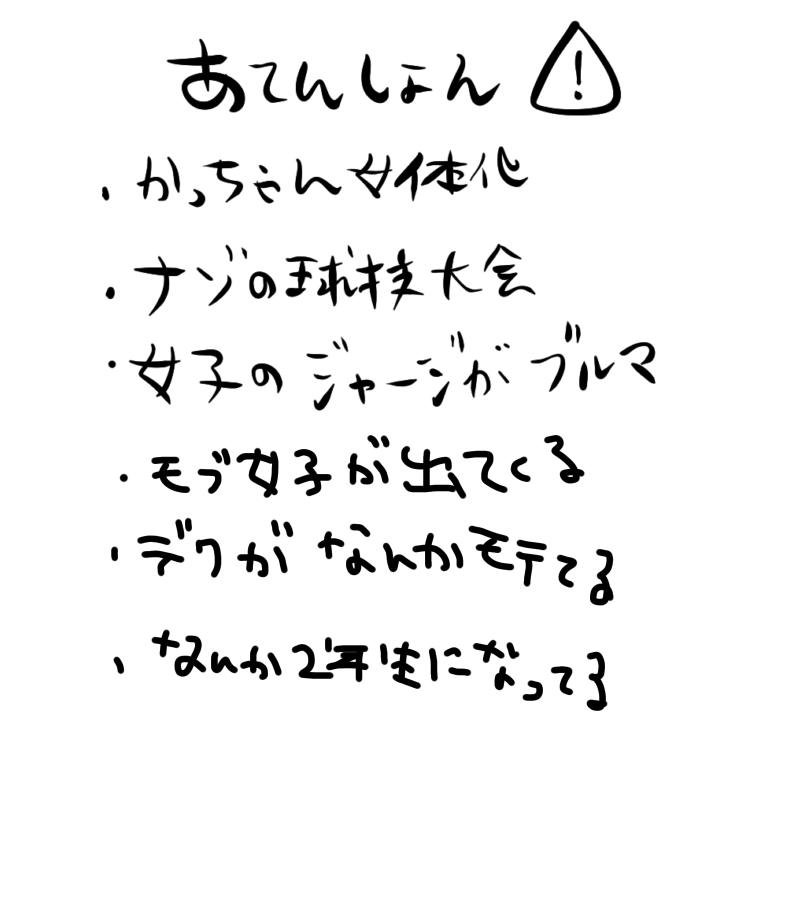 あてんしょん ⚠
・かっちゃん女体化
・ナゾの球技大会
・女子のジャージがブルマ
・モブ女子が出てくる
・デクがなんかモテてる
・なんか2年生になってる